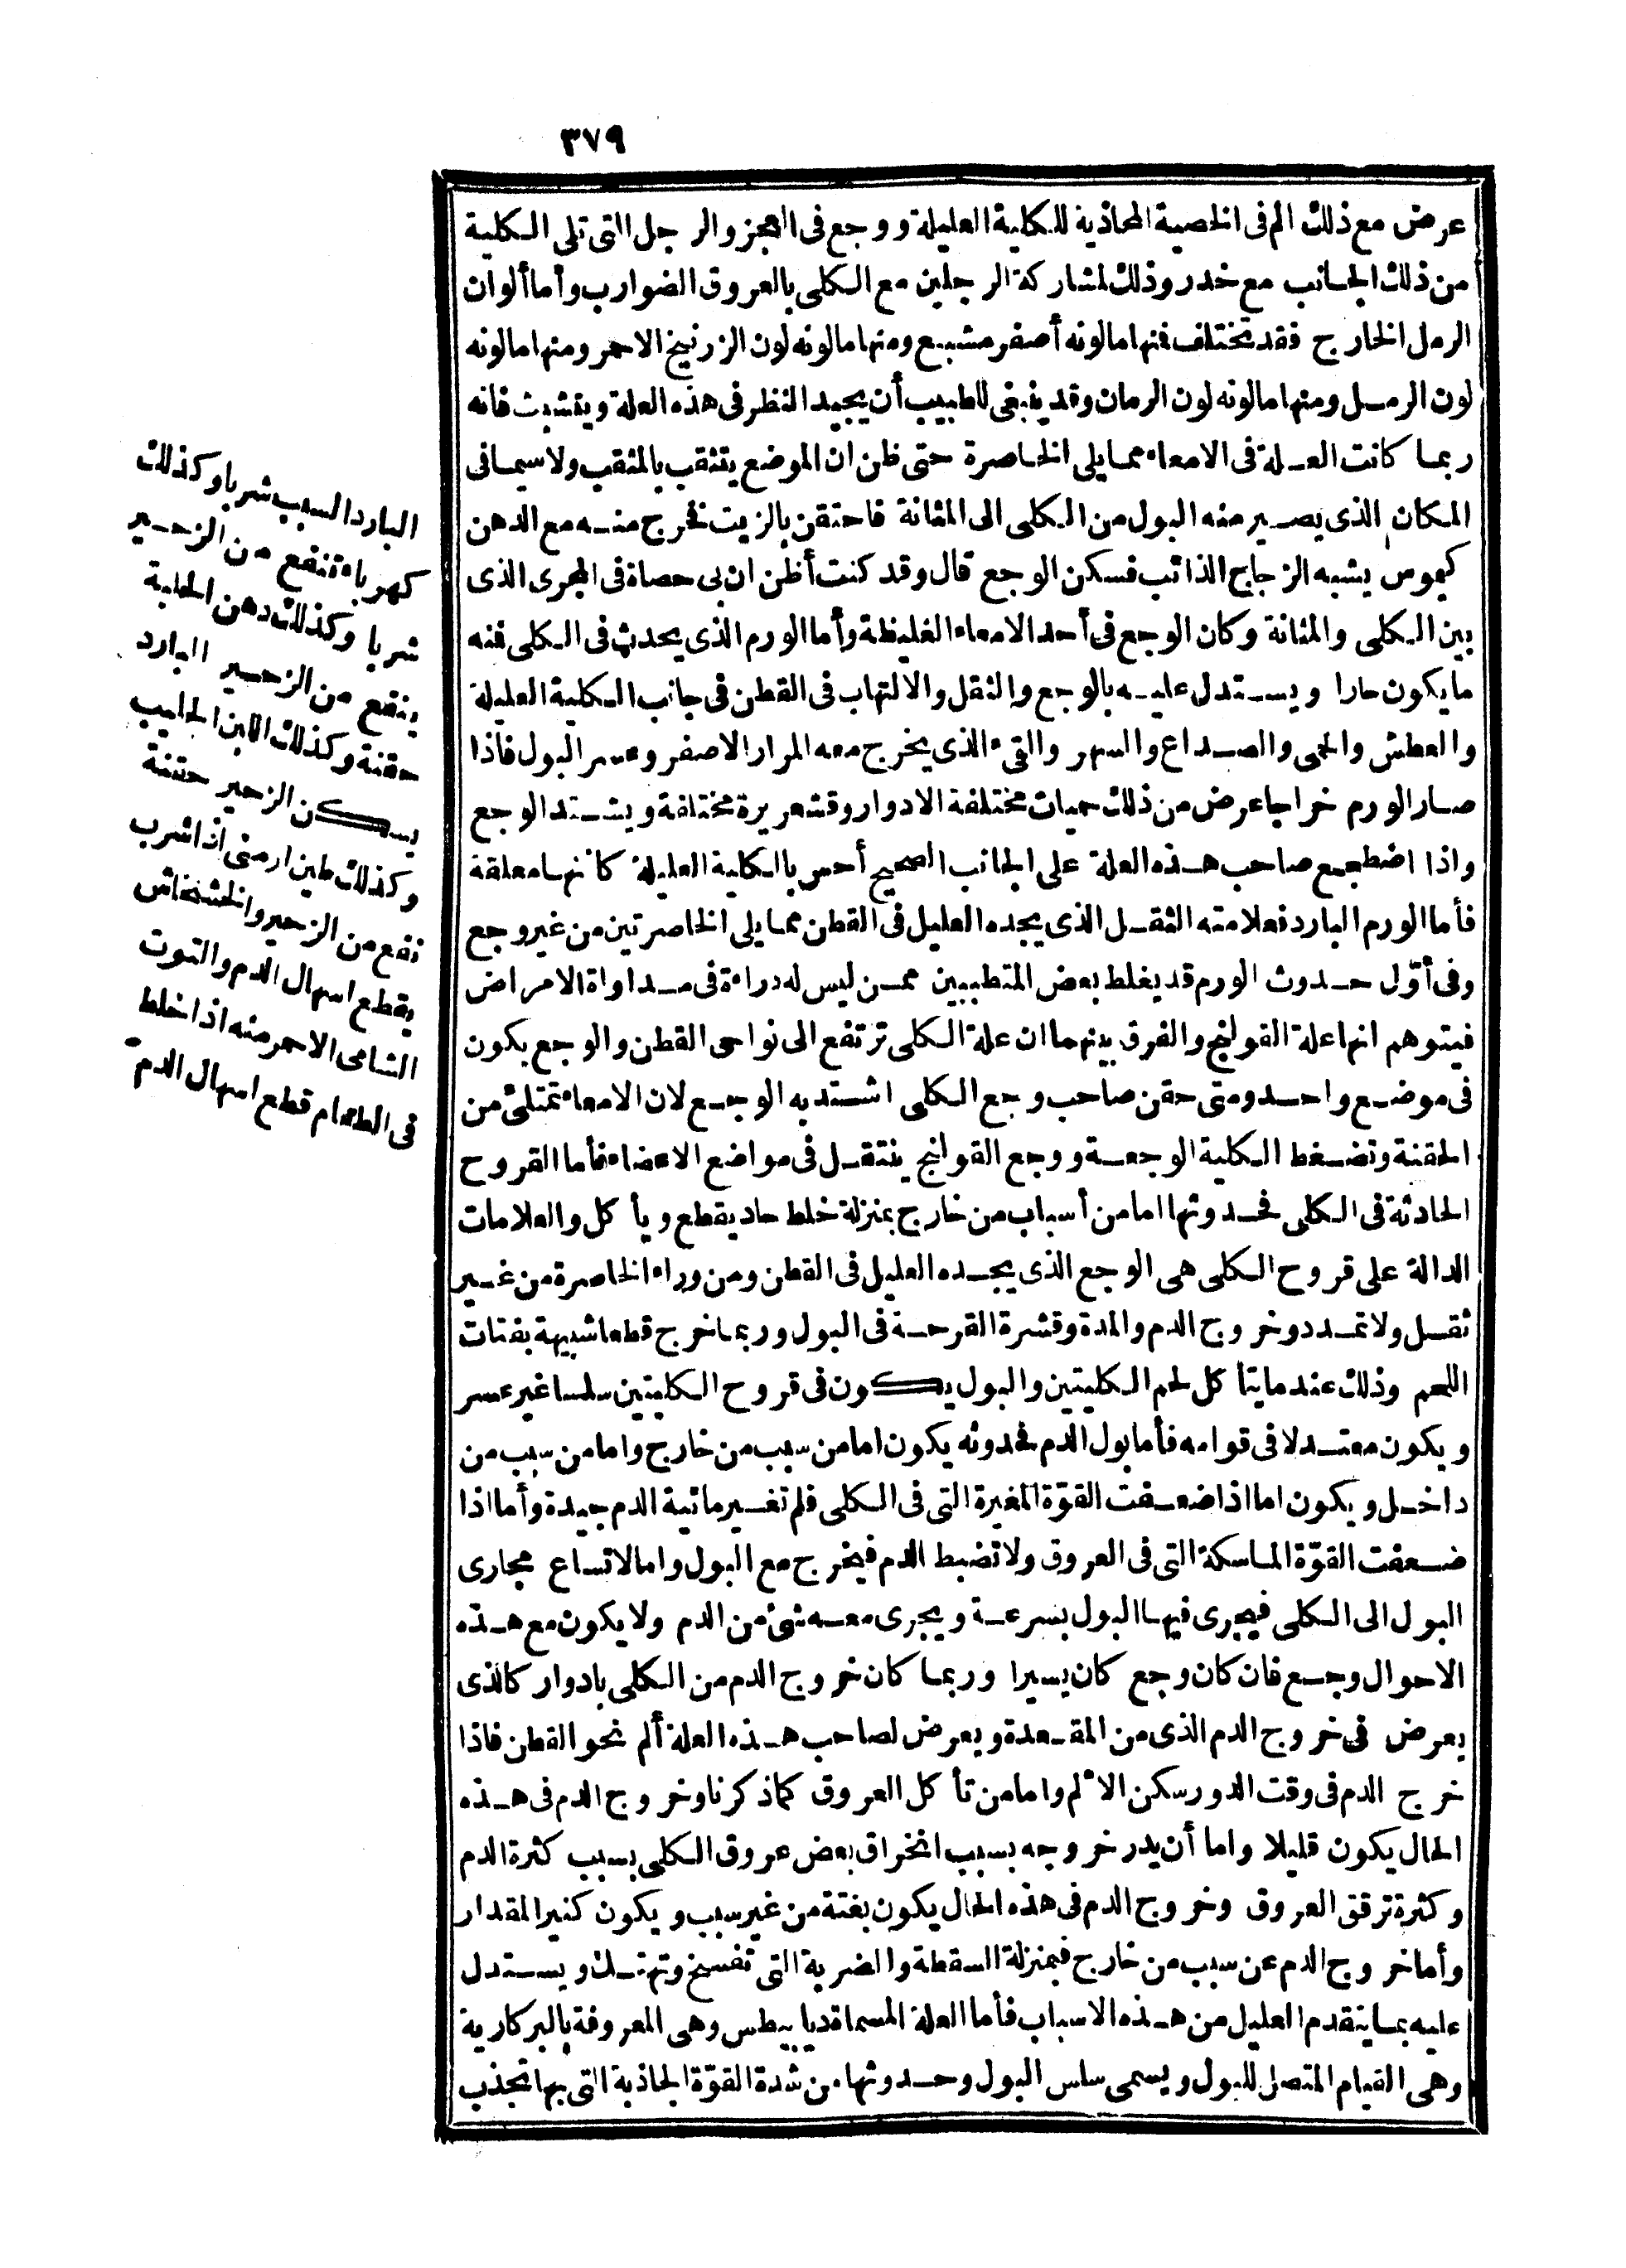 ٣٧٩
عرض مع ذلك ألم فى الخصية المحاذية للكلية العليلة ووجع فى العجز والرجل التى تلى الكلية
من ذلك الجانب مع خدر وذلك لمشاركة الرجلين مع الكلى بالعروق الضوارب وأما ألوان
الرمل الخارج فقد تختلف فنها مالونه أصفر مشبع ومنها مالونه لون الزرنيخ الاحمر ومنها مالونه
لون الرمل ومنها مالونه لون الرمان وقد ينبغى للطبيب أن يجيد النظر فى هذه العلة ويتشبث فانه
ربما كانت العلة فى الامعاء مما يلى الخاصرة حتى ظن ان الموضع يتثقب بالمثقب ولا سيما فى
المكان الذى يصير منه البول من الكلى الى المثانة فاحتقن بالزيت فخرج منه مع الدهن
كيموس يشبه الزجاج الذائب فسكن الوجع قال وقد كنت أظن ان بى حصاة فى المجرى الذى
بين الكلى والمثانة وكان الوجع فى أحد الامعاء الغليظة وأما الورم الذى يحدث فى الكلى فنه
ما يكون حارا ويستدل عليه بالوجع والثقل والالتهاب فى القطن فى جانب الكلية العليلة
والعطش والحمى والصداع والسهر والقىء الذى يخرج معه المرار الاصفر وعسر البول فاذا
صار الورم خراجا عرض من ذلك حميات مختلفة الادوار وقشعريرة مختلفة ويشتد الوجع
واذا اضطجع صاحب هذه العلة على الجانب الصحيح أحس بالكلية العليلة كانها معلقة
فأما الورم البارد فعلامته الثقل الذى يجده العليل فى القطن مما يلى الخاصرتين من غير وجع
وفى أوّل حدوث الورم قد يغلط بعض المتطببين ممن ليس له دراءة فى مداواة الامراض
فيتوهم انها علة القولنج والفرق بينهما ان علة الكلى ترتفع الى نواحى القطن والوجع يكون
فى موضع واحد ومتى حقن صاحب وجع الكلى اشتد به الوجع لان الامعاء تمتلئ من
الحقنة وتضغط الكلية الوجعة ووجع القولنج ينتقل فى مواضع الاعضاء فأما القروح
الحادثة فى الكلى فحدوثها اما من أسباب من خارج بمنزلة خلط حاد يقطع ويأكل والعلامات
الدالة على قروح الكلى هى الوجع الذى يجده العليل فى القطن ومن وراء الخاصرة من غير
ثقل ولا تمدد وخروج الدم والمدة وقشرة القرحة فى البول وربما خرج قطعا شبيهة بفتات
اللحم وذلك عندما يتأكل لحم الكليتين والبول يكون فى قروح الكليتين سلسا غير عسر
ويكون معتدلا فى قوامه فأما بول الدم فحدوثه يكون اما من سبب من خارج واما من سبب من
داخل ويكون اما اذا ضعفت القوّة المغيرة التى فى الكلى فلم تغير مائية الدم جيدة وأما اذا
ضعفت القوّة الماسكة التى فى العروق ولا تضبط الدم فيخرج مع البول واما لاتساع مجارى
البول الى الكلى فيجرى فيها البول بسرعة ويجرى معه شئ من الدم ولا يكون مع هذه
الاحوال وجع فان كان وجع كان يسيرا وربما كان خروج الدم من الكلى بادوار كالذى
يعرض فى خروج الدم الذى من المقعدة ويعرض لصاحب هذه العلة ألم نحو القطن فاذا
خرج الدم فى وقت الدور سكن الألم واما من تأكل العروق كما ذكرنا وخروج الدم فى هذه
الحال يكون قليلا واما أن يدر خروجه بسبب انخراق بعض عروق الكلى بسبب كثرة الدم
وكثرة ترقق العروق وخروج الدم فى هذه الحال يكون بغتة من غير سبب ويكون كثير المقدار
وأما خروج الدم عن سبب من خارج فبمنزلة السقطة والضربة التى تفسخ وتهتك ويستدل
عليه بما يتقدم العليل من هذه الاسباب فأما العلة المسماة ديابيطس وهى المعروفة بالبركارية
وهى القيام المتصل للبول ويسمى سلس البول وحدوثها من شدة القوّة الجاذبة التى بها تجذب
البارد السبب شربا وكذلك
كهرباء تنفع من الزحير
شربا وكذلك دهن الحلبة
ينفع من الزحير البارد
حقنة وكذلك اللبن الحليب
يسكن الزحير حقنة
وكذلك طين ارمنى اذا شرب
نفع من الزحير والخشخاش
يقطع اسهال الدم والتوت
الشامى الاحمر منه اذا خلط
فى الطعام قطع اسهال الدم